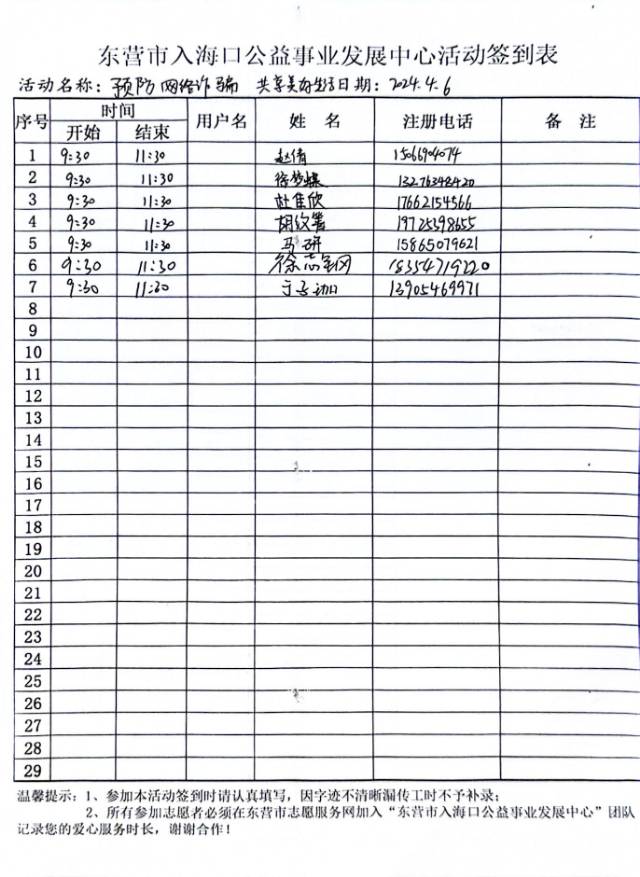 东营市入海口公益事业发展中心活动签到表
活动名称：预防网络诈骗 共享美好生活日期：2024.4.6
序号 时间 用户名 姓名 注册电话 备注
开始 结束
1 9:30 11:30 赵倩 15066904074
2 9:30 11:30 徐梦蝶 13276348420
3 9:30 11:30 杜佳欣 17662154566
4 9:30 11:30 胡纹箐 19725398655
5 9:30 11:30 马研 15865079621
6 9:30 11:30 徐志钢 18354719220
7 9:30 11:30 于 13905469971
8
9
10
11
12
13
14
15
16
17
18
19
20
21
22
23
24
25
26
27
28
29
温馨提示：1、参加本活动签到时请认真填写，因字迹不清晰漏传工时不予补录；
2、所有参加志愿者必须在东营市志愿服务网加入“东营市入海口公益事业发展中心”团队
记录您的爱心服务时长，谢谢合作！